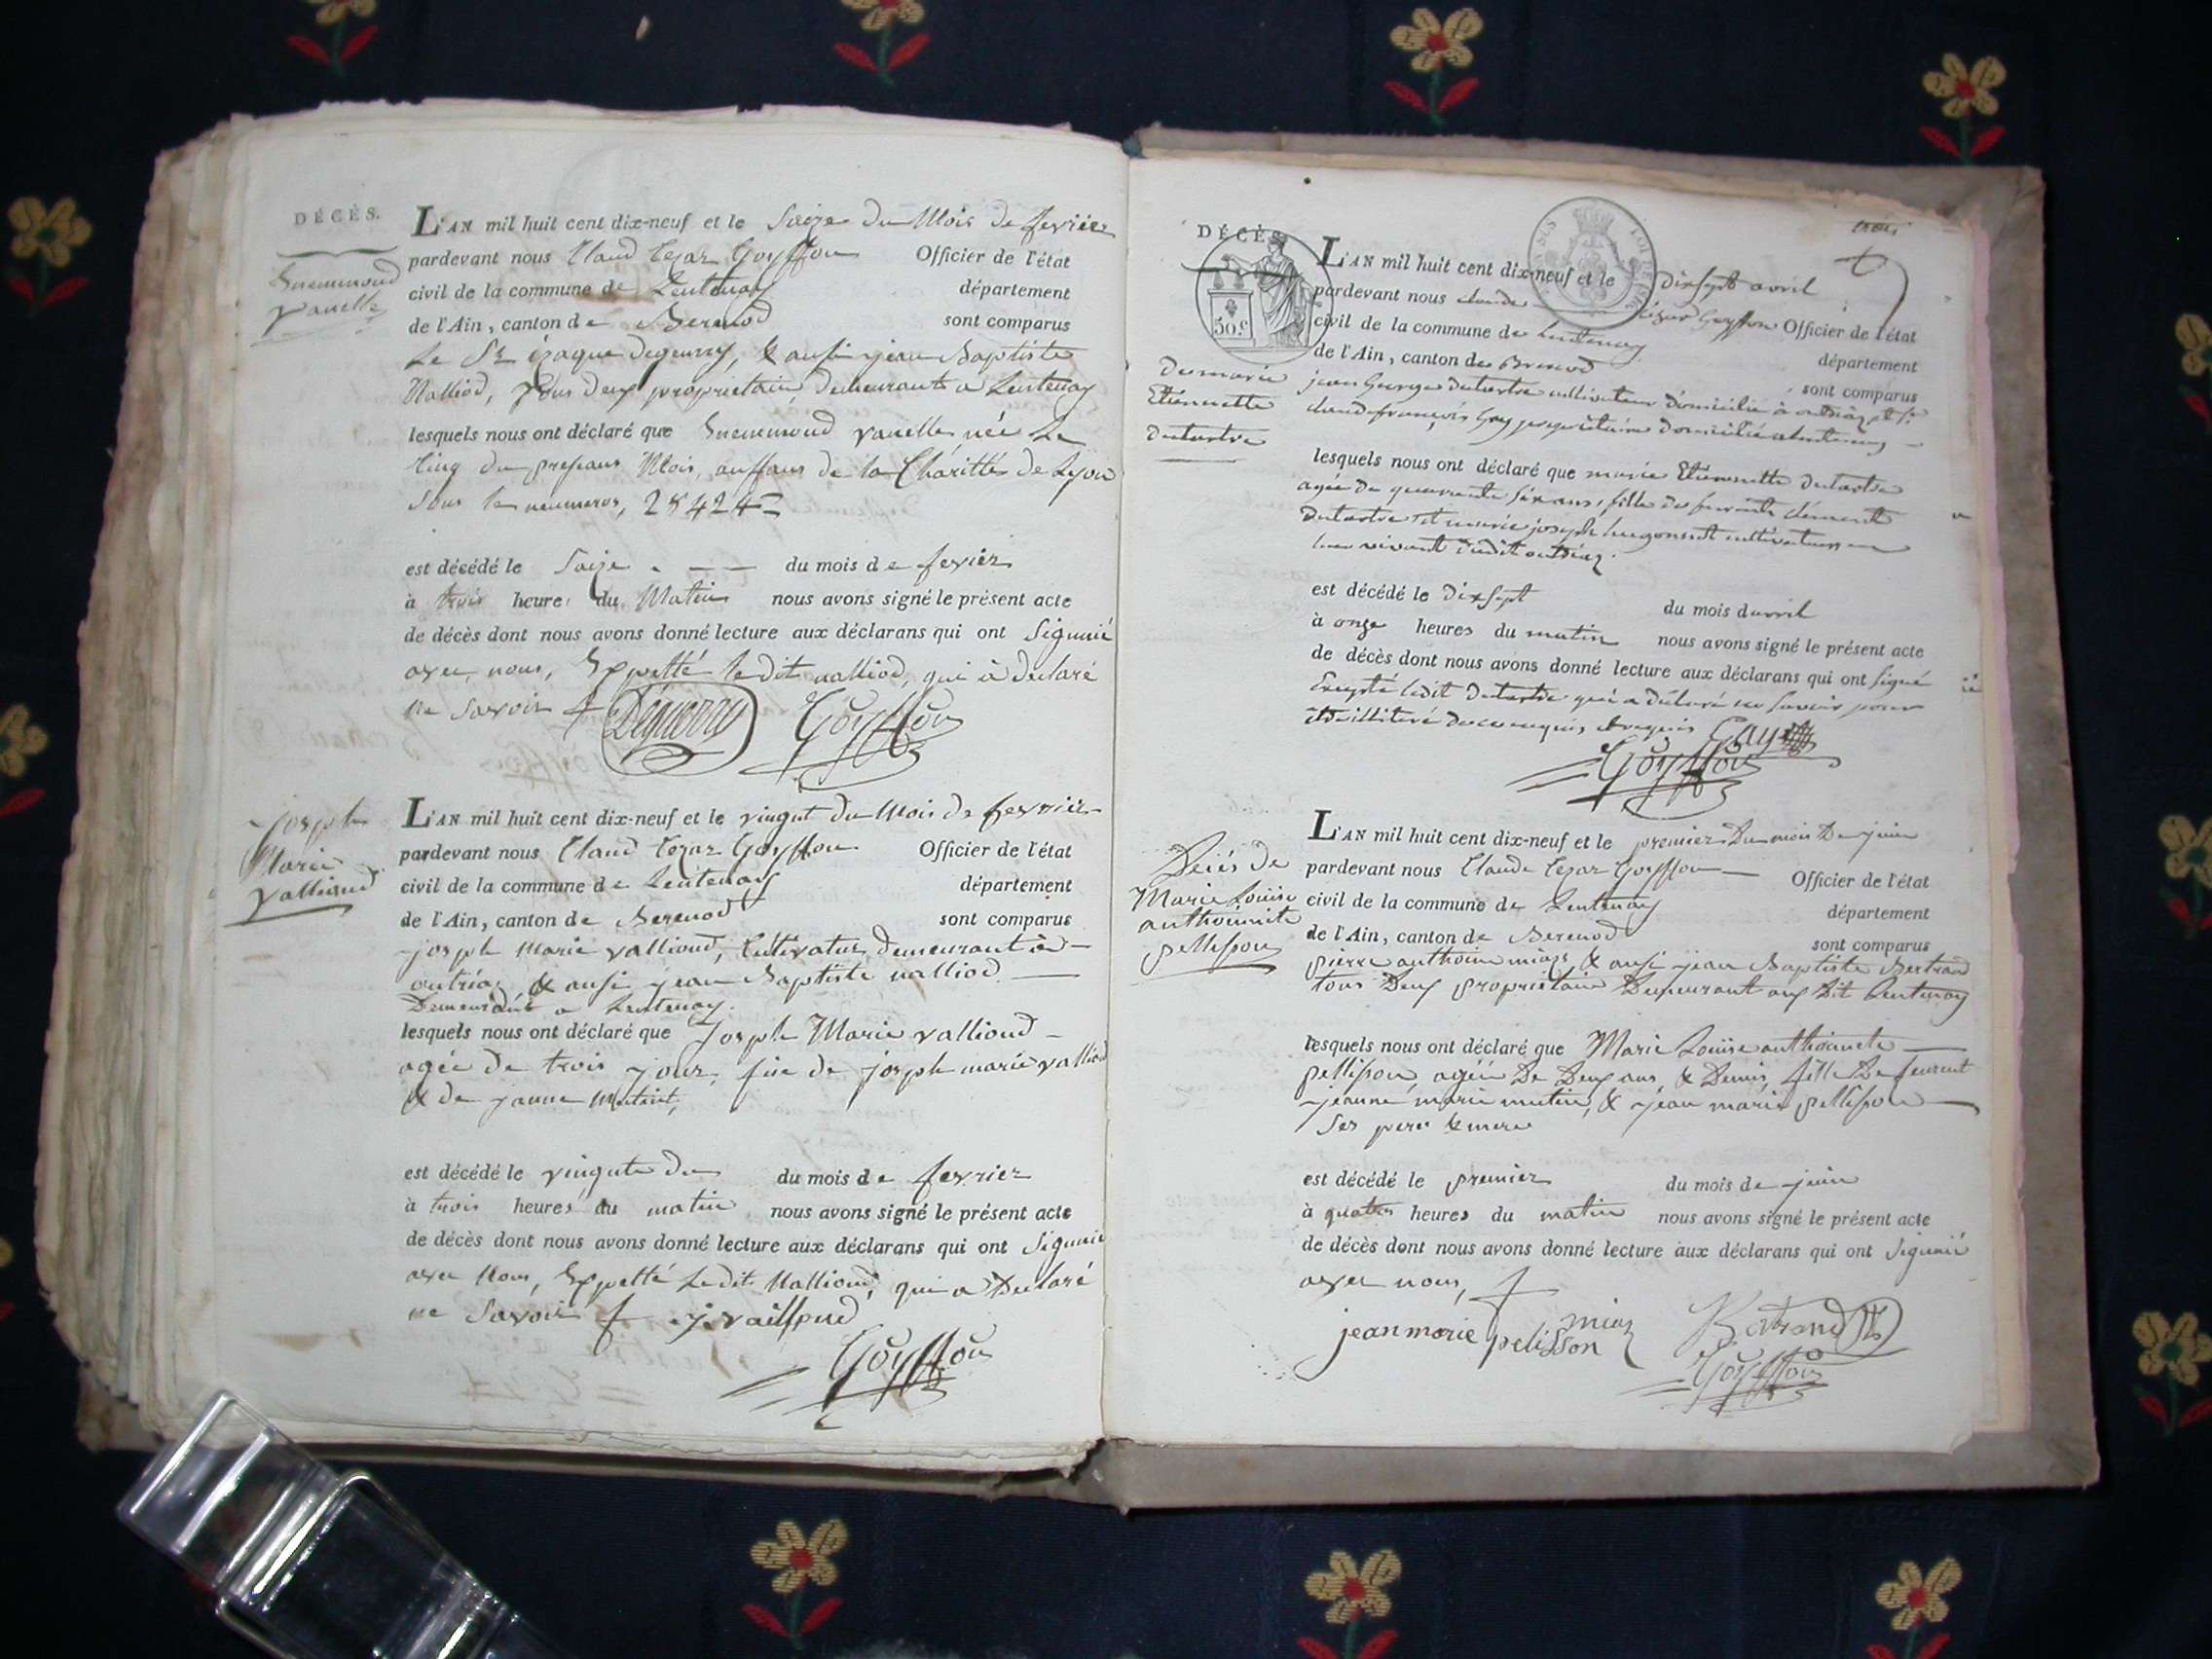 DÉCÈS.
Ennemmond
vanelle
L'AN mil huit cent dix-neuf et le Saize du Mois de fevrier
pardevant nous Claud Cezar Goÿffon Officier de l'état
civil de la commune de Lentenay département
de l'Ain, canton de Berenod sont comparus
Le Sr Deguerry, & ausi jean Baptiste
Nalliod, tous deux proprietaire, demeurants a Lentenay
lesquels nous ont déclaré que Ennemmond vanelle née Le
Cinq du Mois, de la Charitté de Lyon
Sous le neumeros, 28424
est décédé le Saize du mois de fevier
à trois heure du Matin nous avons signé le présent acte
de décès dont nous avons donné lecture aux déclarans qui ont Signnié
avec nous, Exxpetté le dit nalliod, qui à declaré
ne Savoir
Deguerry Goÿffon
Joseph
Marie
valliand
L'AN mil huit cent dix-neuf et le vingut du Mois de fevrier
pardevant nous Claud Cezar Goyffon Officier de l'état
civil de la commune de Lentenay département
de l'Ain, canton de Berenod sont comparus
joseph Marie vallioud, Cultivatur, demeurant à
outriaz & ausi jean Baptiste nalliod
Demeurant a Lentenay.
lesquels nous ont déclaré que Joseph Marie vallioud
agée de trois jour, fise de joseph marie valliod
& de janne Mutint,
est décédé le vingute du du mois de fevrier
à trois heures du matin nous avons signé le présent acte
de décès dont nous avons donné lecture aux déclarans qui ont Signnié
avec Nous, Exxpetté Le dit Nallioud, qui a Declaré
ne Savoir j. vaillioud
Goÿffon
trois
DÉCÈS.
50c
De marie
Etiennette
dutartre
L'AN mil huit cent dix-neuf et le dix sept avril
pardevant nous claude César Goyffon Officier de l'état
civil de la commune de Lentenay département
de l'Ain, canton de Brenod sont comparus
jean George dutartre cultivateur domicilié à outriaz et Sr
claude françois Guy propriétaire domicilié a lentenay
lesquels nous ont déclaré que marie Etiennette dutartre
agée de quarente six ans, fille de clément
dutartre et marie joseph cultivateurs
leur vivant dudit outriaz.
est décédé le dix sept du mois d'avril
à onze heures du matin nous avons signé le présent acte
de décès dont nous avons donné lecture aux déclarans qui ont signé
Excepté ledit dutartre qui a déclaré ne savoir pour
être illiteré de ce enquis et requis Guy
Goÿffon
Déiés de
Marie Louiise
anthoinnite
pellisson
L'AN mil huit cent dix-neuf et le premier Du mois De juin
pardevant nous Claude Cezar Goyffon Officier de l'état
civil de la commune de Lentenay département
de l'Ain, canton de Berenod sont comparus
pierre anthoine miaz & ausi jean Baptiste Bertrand
tous Deux propriétaire Demeurant aux Dit Lentenay
lesquels nous ont déclaré que Marie Louiise anthoinete
pellisson, agée De Deux ans, & Demis, fille De
jeanne marie mutin, & jean marie pellison
Ses pere & mere
est décédé le premier du mois de juin
à quatre heures du matin nous avons signé le présent acte
de décès dont nous avons donné lecture aux déclarans qui ont Signnié
avec nous,
jean marie pelisson miaz Bertrand
Goÿffon